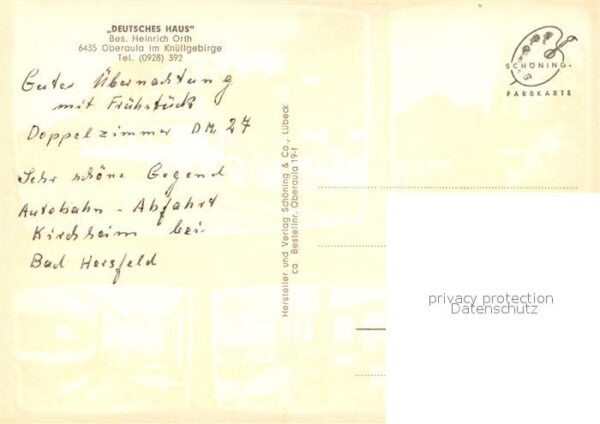 „DEUTSCHES HAUS"
Bes. Heinrich Orth
6435 Oberaula im Knüllgebirge
Tel. (0928) 392
Gutes Übernachtung
mit Frühstück
Doppelzimmer DM. 27
Sehr schöne Gegend
Autobahn - Abfahrt
Kirchheim bei
Bad Hersfeld
Hersteller und Verlag Schöning & Co., Lübeck
ca Bestellnr. Oberaula 19-f
SCHÖNING
FARBKARTE
privacy protection
Datenschutz